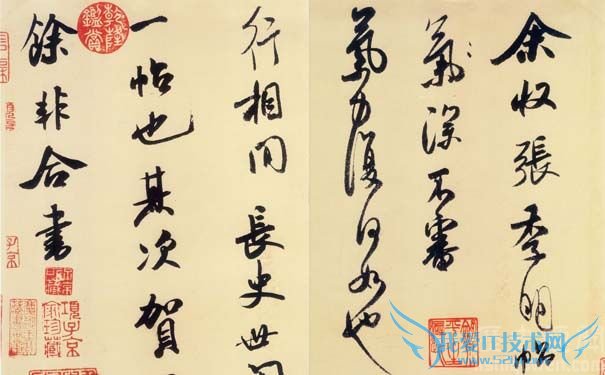 余收張季明帖
氣深不審
氣力復何如也
行相間長史世間
一帖也其次賀
餘非合書
乾隆鑑賞
項子京家珍藏
我爱IT技术网